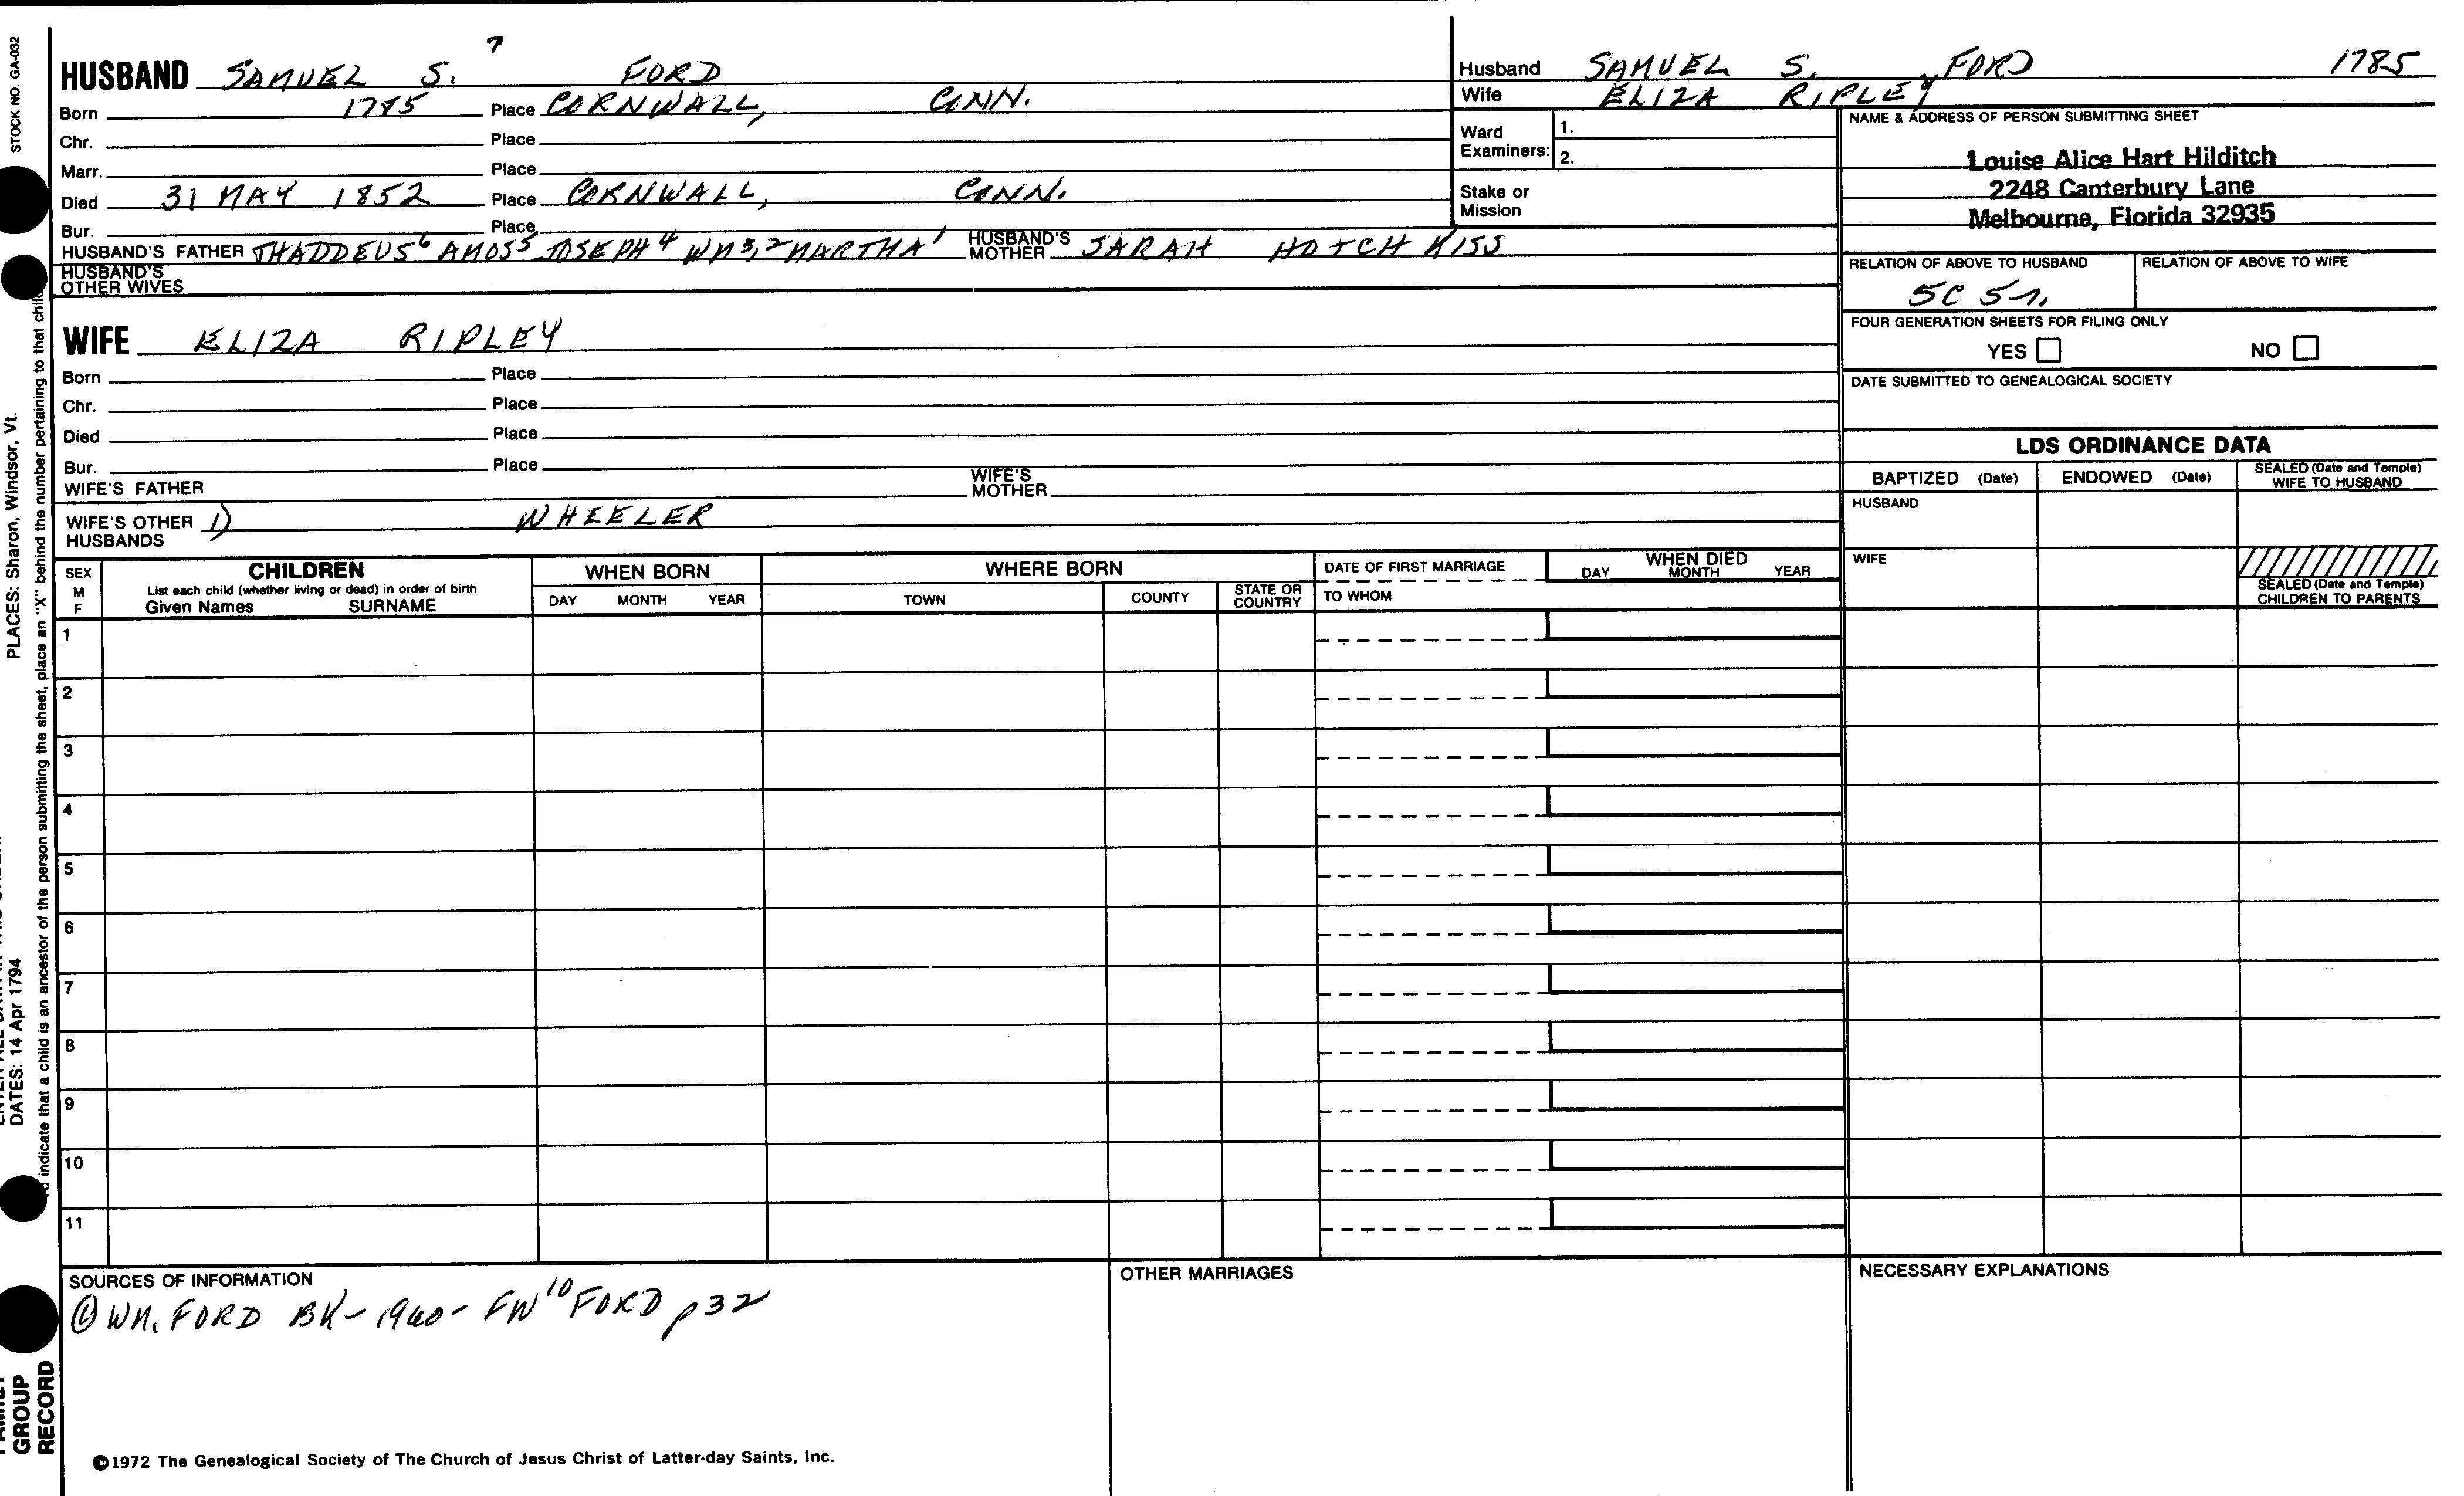 STOCK NO. GA-032
7
HUSBAND SAMUEL S. FORD
Born 1785 Place CORNWALL, CONN.
Chr. Place
Marr. Place
Died 31 MAY 1852 Place CORNWALL, CONN.
Bur. Place
HUSBAND'S FATHER THADDEUS6 AMOS5 JOSEPH4 WM3,2 MARTHA1 HUSBAND'S MOTHER SARAH HOTCHKISS
HUSBAND'S OTHER WIVES
WIFE ELIZA RIPLEY
Born Place
Chr. Place
Died Place
Bur. Place
WIFE'S FATHER WIFE'S MOTHER
WIFE'S OTHER HUSBANDS 1) WHEELER
Husband SAMUEL S. FORD 1785
Wife ELIZA RIPLEY
Ward Examiners: 1.
2.
Stake or Mission
NAME & ADDRESS OF PERSON SUBMITTING SHEET
Louise Alice Hart Hilditch
2248 Canterbury Lane
Melbourne, Florida 32935
RELATION OF ABOVE TO HUSBAND RELATION OF ABOVE TO WIFE
5C 5r.
FOUR GENERATION SHEETS FOR FILING ONLY
YES NO
DATE SUBMITTED TO GENEALOGICAL SOCIETY
LDS ORDINANCE DATA
BAPTIZED (Date) ENDOWED (Date) SEALED (Date and Temple) WIFE TO HUSBAND
HUSBAND
WIFE
SEALED (Date and Temple) CHILDREN TO PARENTS
SEX M F
CHILDREN
List each child (whether living or dead) in order of birth
Given Names SURNAME
WHEN BORN
DAY MONTH YEAR
WHERE BORN
TOWN COUNTY STATE OR COUNTRY
DATE OF FIRST MARRIAGE
TO WHOM
WHEN DIED
DAY MONTH YEAR
1
2
3
4
5
6
7
8
9
10
11
SOURCES OF INFORMATION
WM. FORD BK - 1940 - FW10 FORD p32
OTHER MARRIAGES
NECESSARY EXPLANATIONS
©1972 The Genealogical Society of The Church of Jesus Christ of Latter-day Saints, Inc.
PLACES: Sharon, Windsor, Vt.
DATES: 14 Apr 1794
indicate that a child is an ancestor of the person submitting the sheet, place an "X" behind the number pertaining to that child
GROUP
RECORD